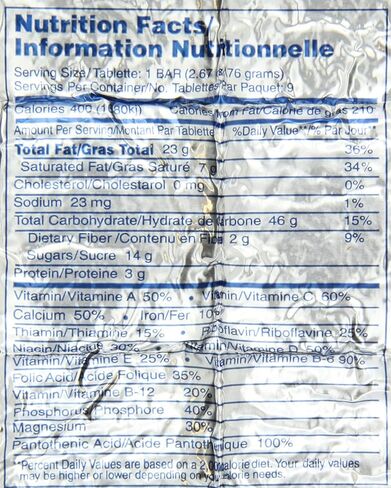 Nutrition Facts/
Information Nutritionnelle
Serving Size/Tablette: 1 BAR (2.67 /76 grams)
Servings Per Container/No. Tablettes Par Paquet: 9
Calories 400 Calories from Fat/Calorie de gras 210
Amount Per Serving/Montant Par Tablette %Daily Value**/% Par Jour
Total Fat/Gras Total 23 g 36%
Saturated Fat/Gras Saturé 7 g 34%
Cholesterol/Cholestarol 0 mg 0%
Sodium 23 mg 1%
Total Carbohydrate/Hydrate de Carbone 46 g 15%
Dietary Fiber /Contenu en Fibre 2 g 9%
Sugars/Sucre 14 g
Protein/Proteine 3 g
Vitamin/Vitamine A 50% • Vitamin/Vitamine C 60%
Calcium 50% • Iron/Fer 10%
Thiamin/Thiamine 15% • Riboflavin/Riboflavine 25%
Niacin/Niacine 30% • Vitamin/Vitamine D 50%
Vitamin/Vitamine E 25% • Vitamin/Vitamine B-6 90%
Folic Acid/Acide Folique 35%
Vitamin/Vitamine B-12 20%
Phosphorus/Phosphore 40%
Magnesium 30%
Pantothenic Acid/Acide Pantothenique 100%
*Percent Daily Values are based on a 2,000 calorie diet. Your daily values
may be higher or lower depending on your calorie needs.